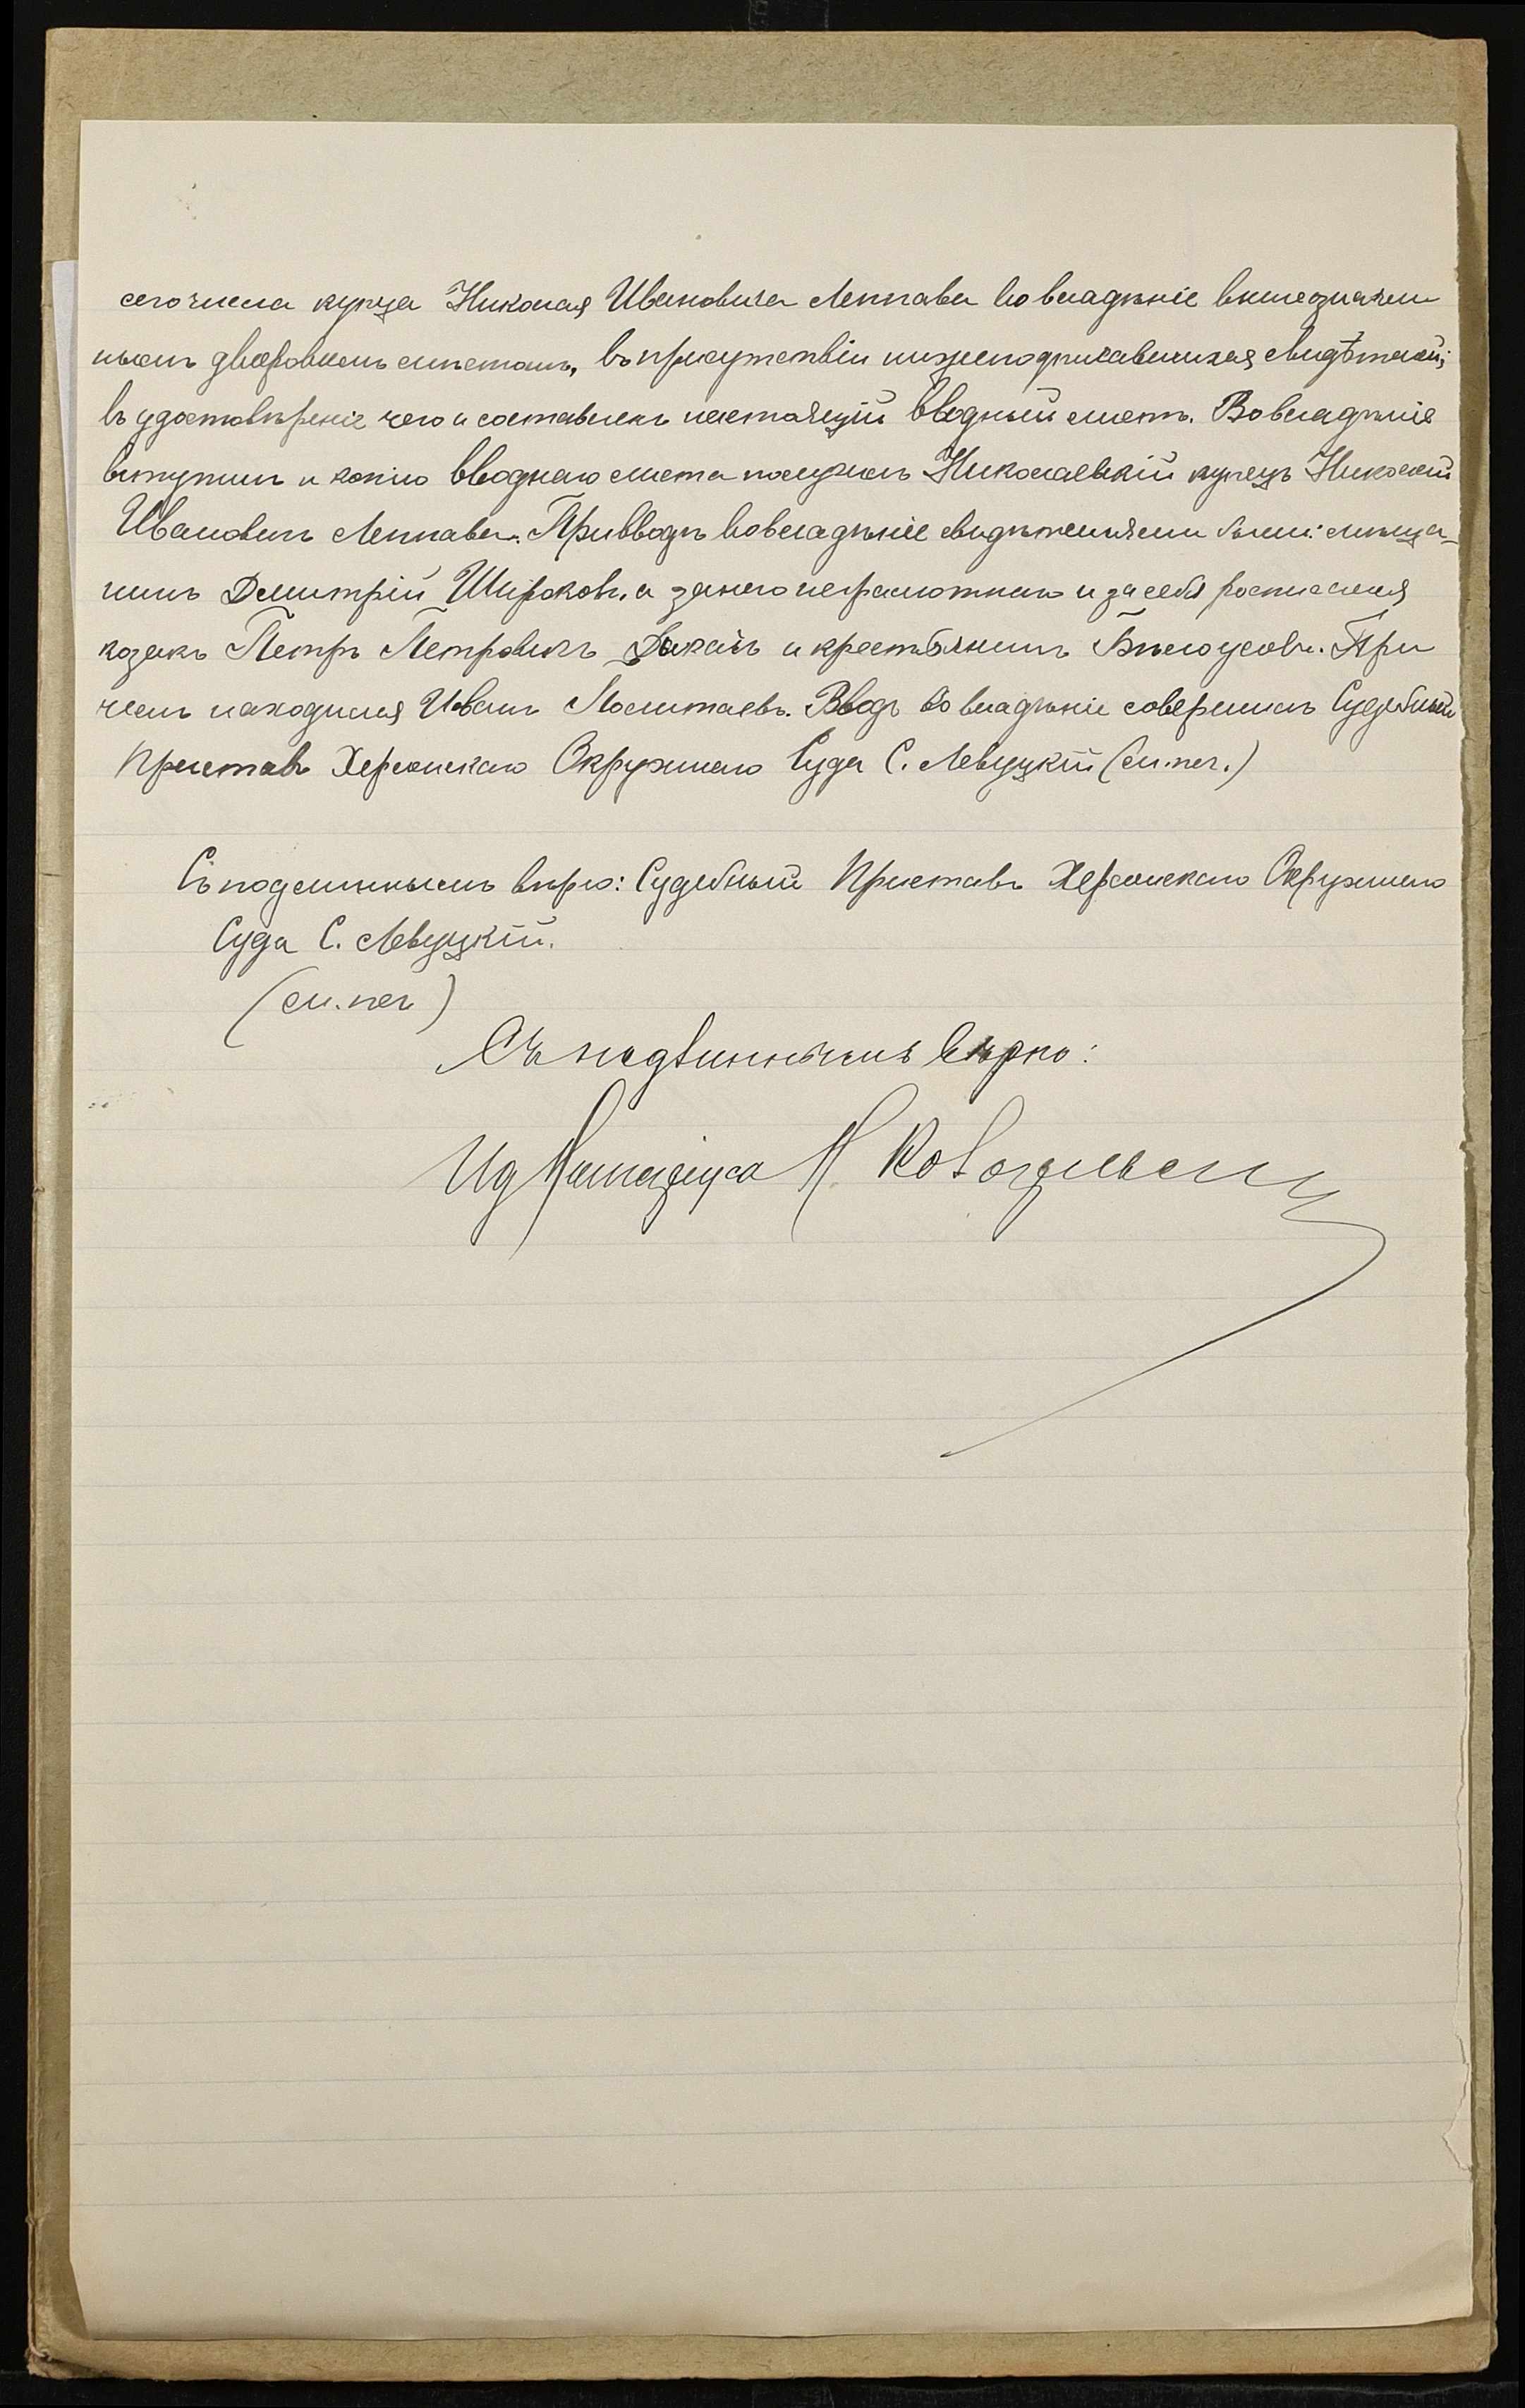 сего числа купца Николая Ивановича Леппава во владѣніе вышеозначен
нымъ дворовымъ мѣстомъ, въ присутствіи нижеподписавшихся свидѣтелей;
въ удостовѣреніе чего и составленъ настоящій вводный листъ. Во владѣніе
вступилъ и копію вводнаго листа получилъ Николаевскій купецъ Николай
Ивановичъ Леппава. При вводѣ во владѣніе свидѣтелями были: мѣща-
нинъ Димитрій Широковъ, а за него неграмотнаго и за себя росписался
козакъ Петръ Петровичъ и крестьянинъ Бѣлоусовъ. При
чемъ находился Иванъ Вводъ во владѣніе совершилъ Судебный
Приставъ Херсонскаго Окружнаго Суда С. Левуцкій (м. печ.)
Съ подлиннымъ вѣрно: Судебный Приставъ Херсонскаго Окружнаго
Суда С. Левуцкій.
(м. печ)
Съ подлиннымъ вѣрно:
Ид Нотаріуса Н.